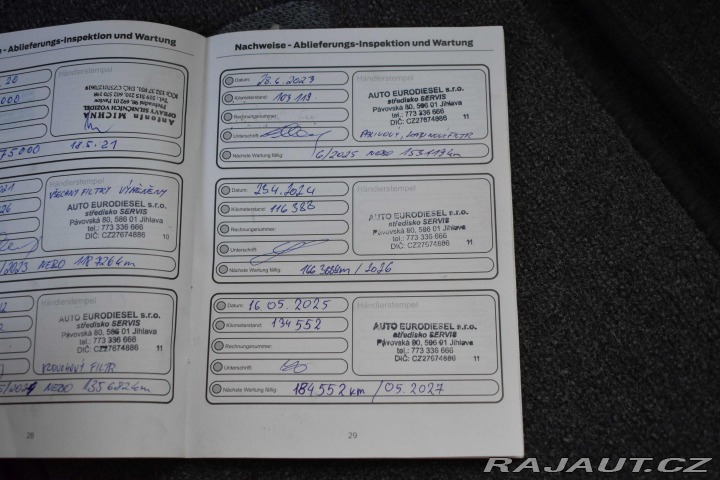 - Ablieferungs-Inspektion und Wartung
Händlerstempel
Antonín MICHNA
OPRAVY SILNIČNÍCH VOZIDEL
75000
18.5.21
Händlerstempel
VŠECHNY FILTRY VYMĚNĚNY
AUTO EURODIESEL s.r.o.
středisko SERVIS
Pávovská 80, 586 01 Jihlava
tel.: 773 336 666
DIČ: CZ27674886 10
/2023 NEBO 118726km
Händlerstempel
AUTO EURODIESEL s.r.o.
středisko SERVIS
Pávovská 80, 586 01 Jihlava
tel.: 773 336 666
DIČ: CZ27674886 11
NEBO 135682km
28
Nachweise - Ablieferungs-Inspektion und Wartung
Datum:
Händlerstempel
Kilometerstand: 103 119
Rechnungsnummer:
Unterschrift:
AUTO EURODIESEL s.r.o.
středisko SERVIS
Pávovská 80, 586 01 Jihlava
tel.: 773 336 666
DIČ: CZ27674886 11
Nächste Wartung fällig: 6/2025 NEBO 153119km
Datum: 23.4.2024
Händlerstempel
Kilometerstand: 116 388
Rechnungsnummer:
Unterschrift:
AUTO EURODIESEL s.r.o.
středisko SERVIS
Pávovská 80, 586 01 Jihlava
tel.: 773 336 666
DIČ: CZ27674886 11
Nächste Wartung fällig: /2026
Datum: 16.05.2025
Händlerstempel
Kilometerstand: 134 552
Rechnungsnummer:
Unterschrift:
AUTO EURODIESEL s.r.o.
středisko SERVIS
Pávovská 80, 586 01 Jihlava
tel.: 773 336 666
DIČ: CZ27674886 11
Nächste Wartung fällig: 184552 km /05.2027
29
RAJAUT.CZ